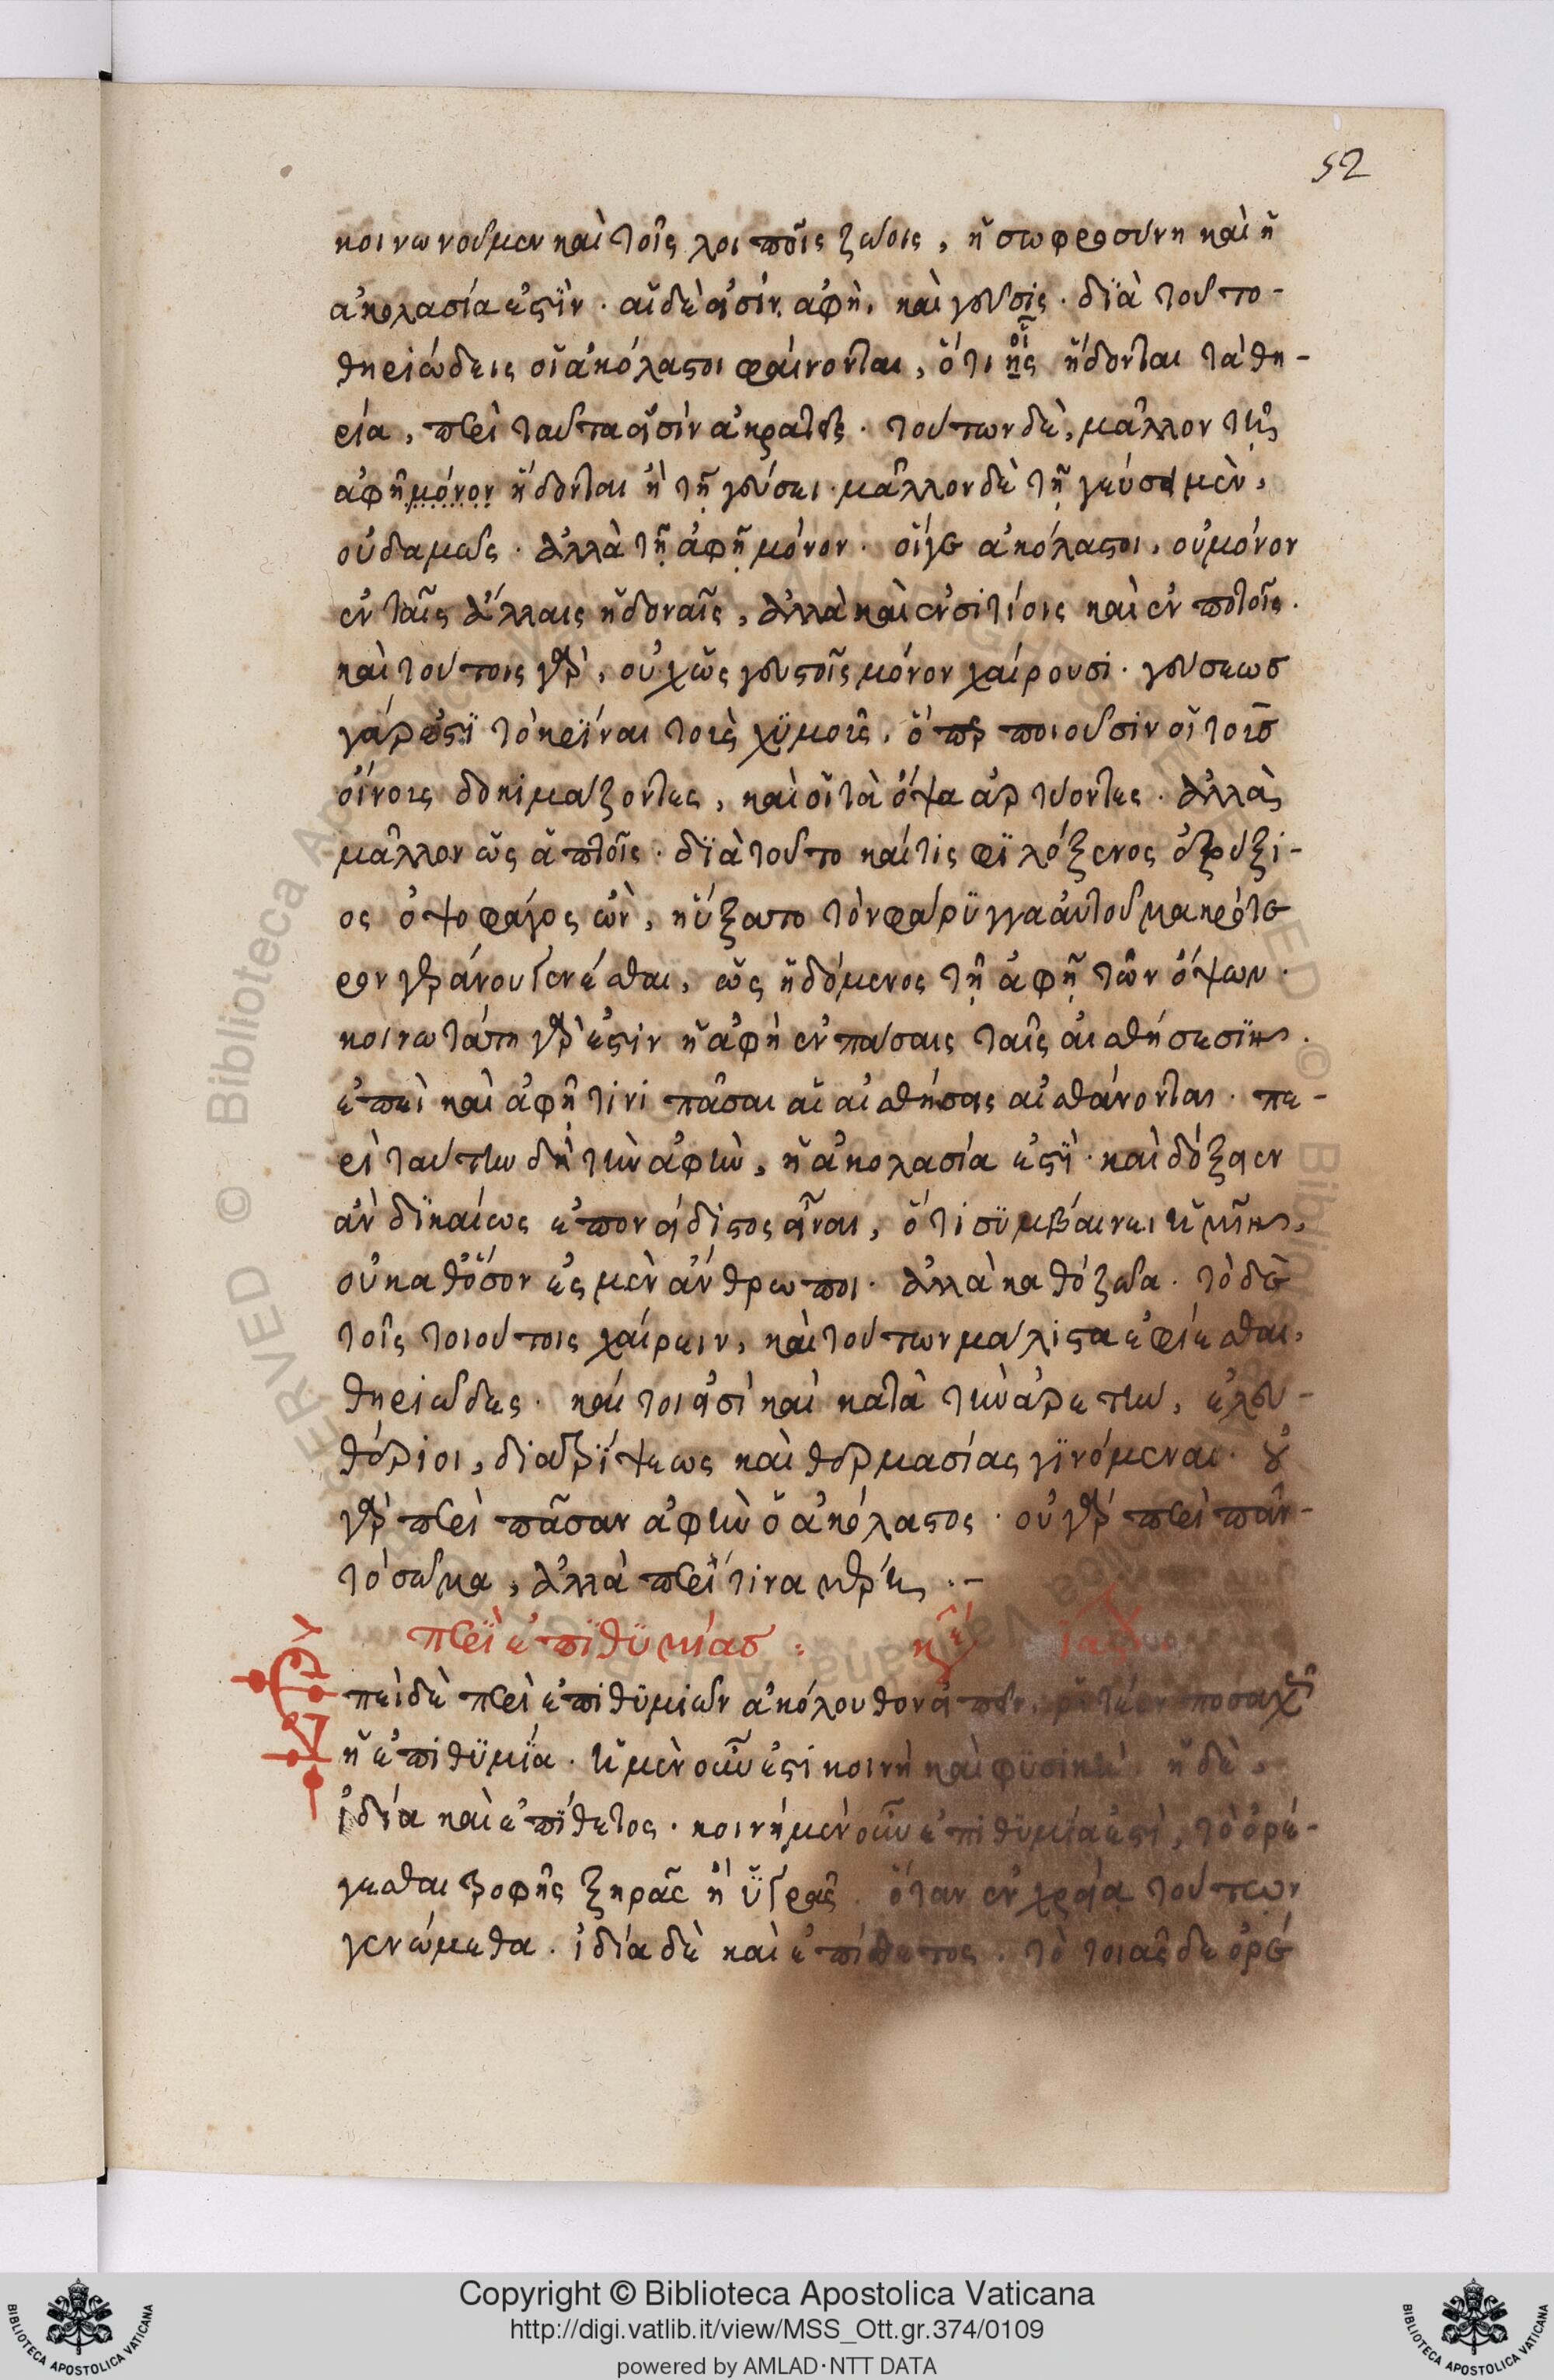 52
κοινωνοῦμεν καὶ τοῖς λοιποῖς ζώοις, ἡ σωφροσύνη καὶ ἡ
ἀκολασία ἐστὶν. αἱ δὲ εἰσὶν, ἁφὴ, καὶ γεῦσις. διὰ τοῦτο-
θηριώδεις οἱ ἀκόλαστοι φαίνονται, ὅτι οἷς ἥδονται τὰ θη-
ρία, περὶ ταῦτα εἰσὶν ἀκρατεῖς. τούτων δὲ, μᾶλλον τῇ
ἁφῇ μόνον ἥδονται ἢ τῇ γεύσει. μᾶλλον δὲ τῇ γεύσει μὲν,
οὐδαμῶς. ἀλλὰ τῇ ἁφῇ μόνον. οἵγε ἀκόλαστοι, οὐ μόνον
ἐν ταῖς ἄλλαις ἡδοναῖς, ἀλλὰ καὶ ἐν σιτίοις καὶ ἐν ποτοῖς.
καὶ τούτοις γὰρ, οὐχ ὡς γευστοῖς μόνον χαίρουσι. γεύσεως
γάρ ἐστι τὸ κρῖναι τοὺς χυμοὺς, ὅπερ ποιοῦσιν οἱ τοὺς
οἴνους δοκιμάζοντες, καὶ οἱ τὰ ὄψα ἀρτύοντες. ἀλλὰ
μᾶλλον ὡς ἁπτοῖς. διὰ τοῦτο καί τις φιλόξενος ὁ ἐρύξι-
ος ὀψοφάγος ὢν, ηὔξατο τὸν φάρυγγα αὐτοῦ μακρότε
ρον γεράνου γενέσθαι, ὡς ἡδόμενος τῇ ἁφῇ τῶν ὄψων.
κοινωτάτη γὰρ ἐστιν ἡ ἁφὴ ἐν πάσαις ταῖς αἰσθήσεσιν.
ἐπεὶ καὶ ἁφῇ τινι πᾶσαι αἱ αἰσθήσεις αἰσθάνονται. πε-
ρὶ ταύτην δὴ τὴν ἁφὴν, ἡ ἀκολασία ἐστί. καὶ δόξειεν
ἂν δικαίως ἐπονείδιστος εἶναι, ὅτι συμβαίνει ἡμῖν,
οὐ καθόσον ἐσμὲν ἄνθρωποι. ἀλλὰ καθὸ ζῶα. τὸ δὲ
τοῖς τοιούτοις χαίρειν, καὶ τούτων μάλιστα ἐφίεσθαι,
θηριῶδες. καί τοι εἰσὶ καὶ κατὰ τὴν ἀρετὴν, ἐλευ-
θέριοι, διατρίψεως καὶ θερμασίας γινόμεναι. οὐ
γὰρ περὶ πᾶσαν ἁφὴν ὁ ἀκόλαστος. οὐ γὰρ περὶ πᾶν-
τὸ σῶμα, ἀλλὰ περί τινα μέρη .-
περὶ ἐπιθυμίας :
πεὶ δὲ περὶ ἐπιθυμιῶν ἀκόλουθον εἰπεῖν, ῥητέον ποσαχῶς
ἡ ἐπιθυμία. ἡ μὲν οὖν ἐστι κοινὴ καὶ φυσικὴ. ἡ δὲ,
ἰδία καὶ ἐπίθετος. κοινὴ μὲν οὖν ἐπιθυμία ἐστὶ, τὸ ὀρέ-
γεσθαι τροφῆς ξηρᾶς ἢ ὑγρᾶς. ὅταν ἐν χρεία τούτων
γενώμεθα. ἰδία δὲ καὶ ἐπίθετος. τὸ τοιᾶσδε ὀρέ
Copyright © Biblioteca Apostolica Vaticana
http://digi.vatlib.it/view/MSS_Ott.gr.374/0109
powered by AMLAD·NTT DATA